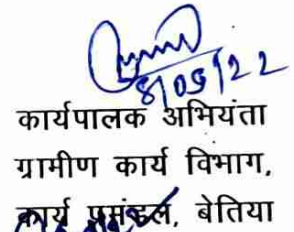 8/09/22
कार्यपालक अभियंता
ग्रामीण कार्य विभाग,
कार्य प्रमंडल, बेतिया